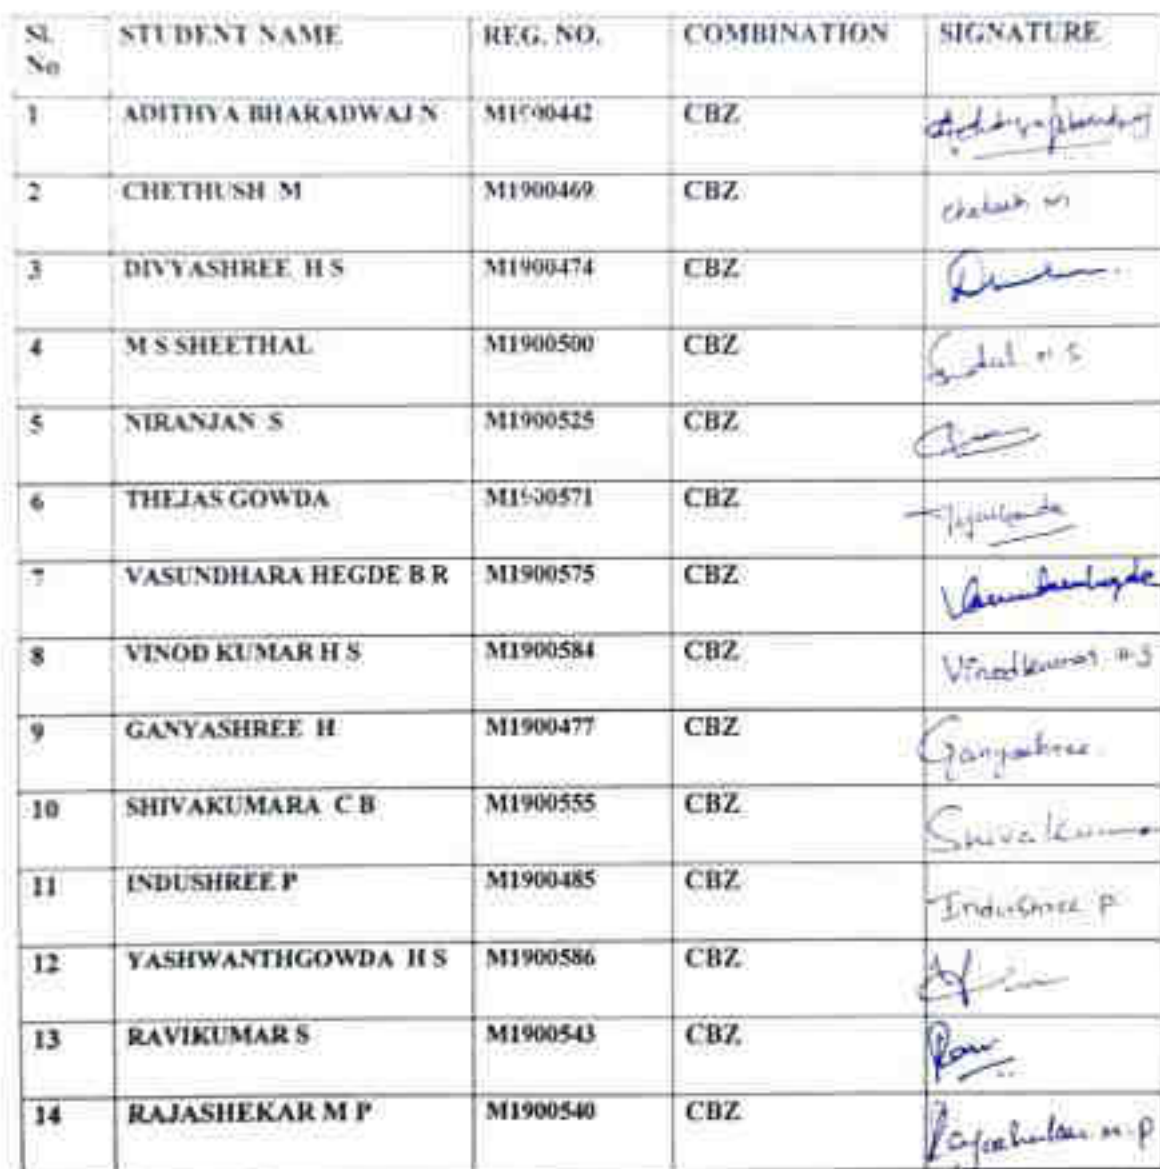 Sl. STUDENT NAME REG. NO. COMBINATION SIGNATURE
No
1 ADITHYA BHARADWAJ N M1900442 CBZ
2 CHETHUSH M M1900469 CBZ Chethush M
3 DIVYASHREE H S M1900474 CBZ
4 M S SHEETHAL M1900500 CBZ
5 NIRANJAN S M1900525 CBZ
6 THEJAS GOWDA M1900571 CBZ
7 VASUNDHARA HEGDE B R M1900575 CBZ Vasundharahegde
8 VINOD KUMAR H S M1900584 CBZ Vinodkumar H S
9 GANYASHREE H M1900477 CBZ Ganyashree
10 SHIVAKUMARA C B M1900555 CBZ Shivakumar
11 INDUSHREE P M1900485 CBZ Indushree P
12 YASHWANTHGOWDA H S M1900586 CBZ
13 RAVIKUMAR S M1900543 CBZ
14 RAJASHEKAR M P M1900540 CBZ Rajashekar M P